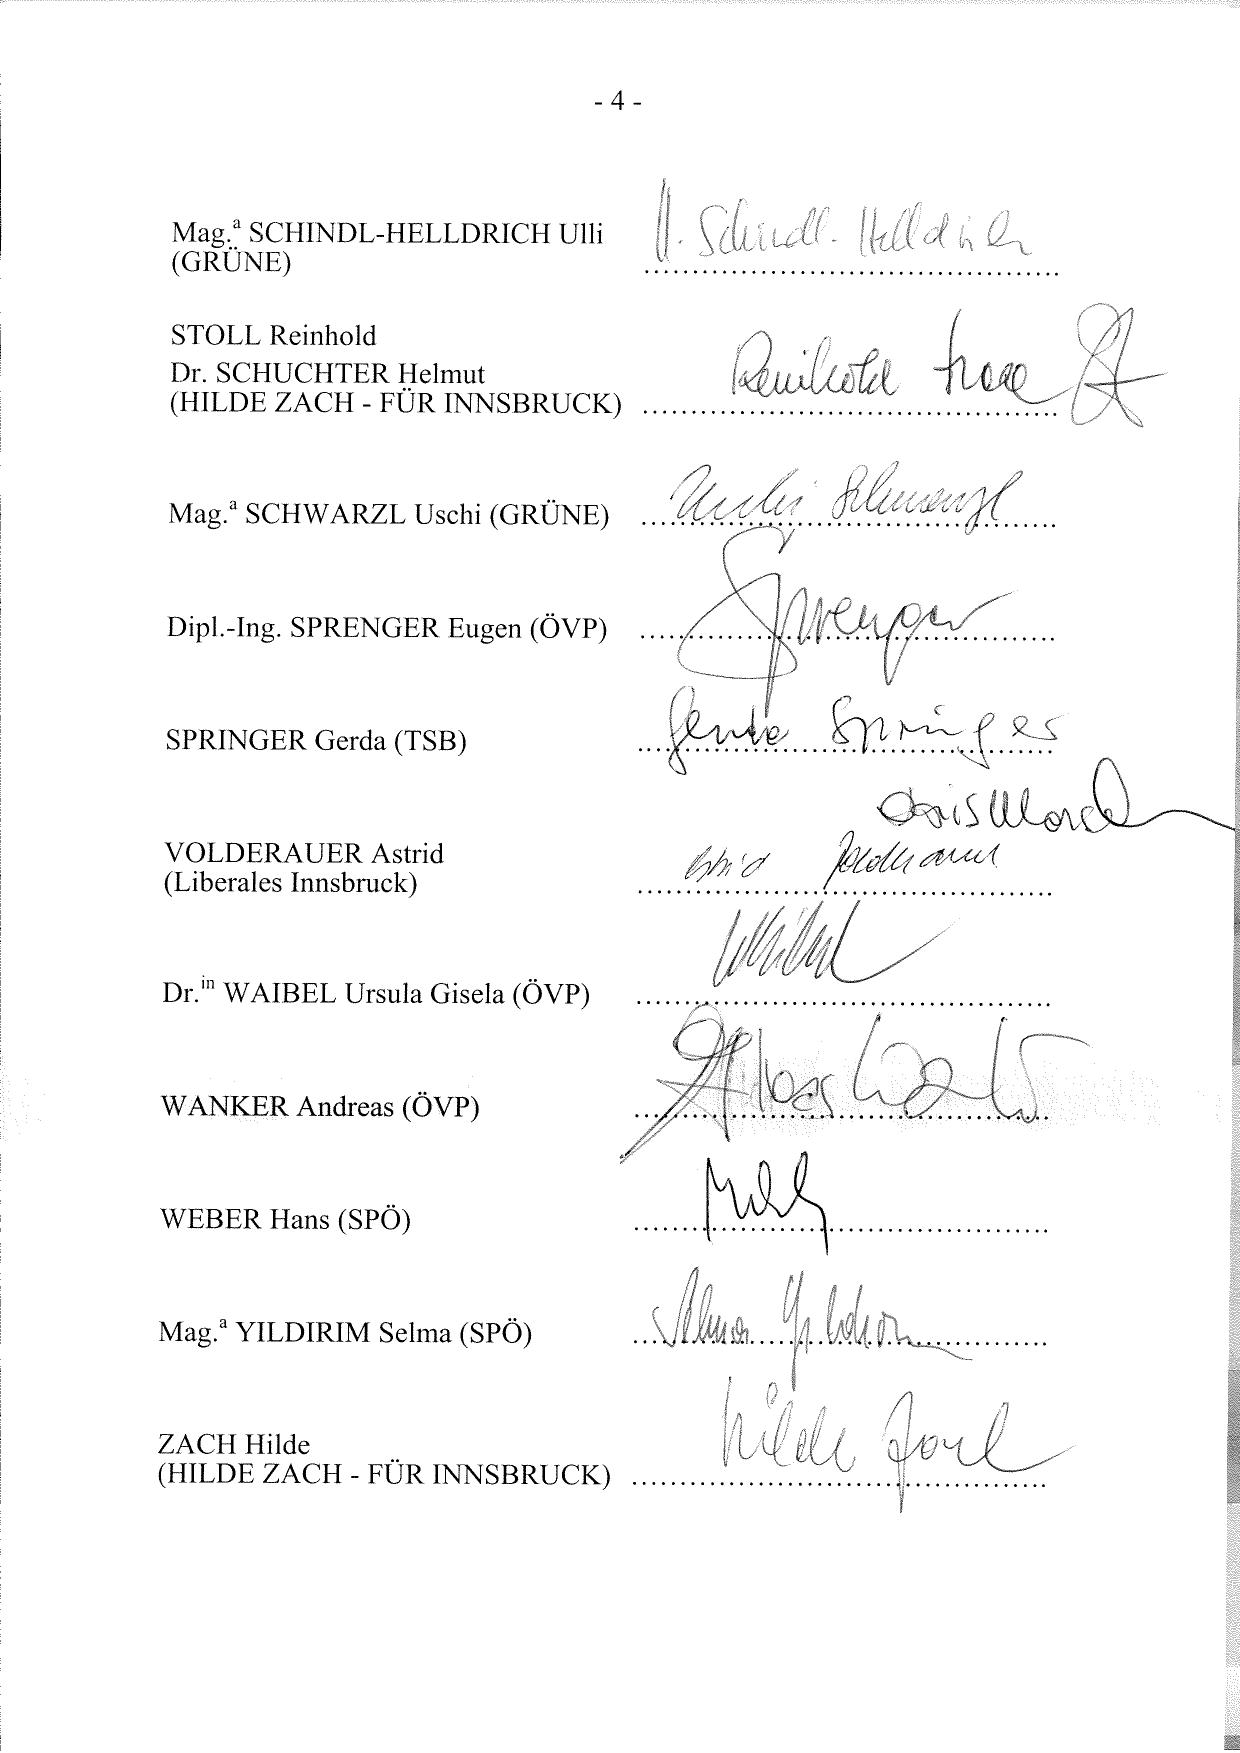 - 4 -
Mag.ª SCHINDL-HELLDRICH Ulli
U. Schindl-Helldrich
(GRÜNE)
STOLL Reinhold
Dr. SCHUCHTER Helmut
Reinhold
(HILDE ZACH - FÜR INNSBRUCK)
Mag.ª SCHWARZL Uschi (GRÜNE)
Uschi Schwarzl
Dipl.-Ing. SPRENGER Eugen (ÖVP)
Sprenger
SPRINGER Gerda (TSB)
Gerda Springer
VOLDERAUER Astrid
Astrid
(Liberales Innsbruck)
Dr.in WAIBEL Ursula Gisela (ÖVP)
WANKER Andreas (ÖVP)
WEBER Hans (SPÖ)
Mag.ª YILDIRIM Selma (SPÖ)
Selma Yildirim
ZACH Hilde
Hilde Zach
(HILDE ZACH - FÜR INNSBRUCK)